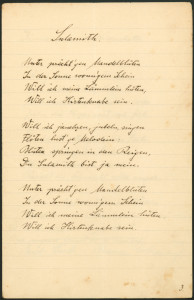 Sulamith.
Unter prächt'gen Mandelblüten
In der Sonne wonnigem Schein
Will ich meine Lämmlein hüten,
Will ich Hirtenknabe sein.
Will ich jauchzen, jubeln, singen
Flöten süße Melodein
Blüten springen in den Reigen,
Du Sulamith bist ja mein.
Unter prächt'gen Mandelblüten
In der Sonne wonnigem Schein
Will ich meine Lämmlein hüten
Will ich Hirtenknabe sein.
3